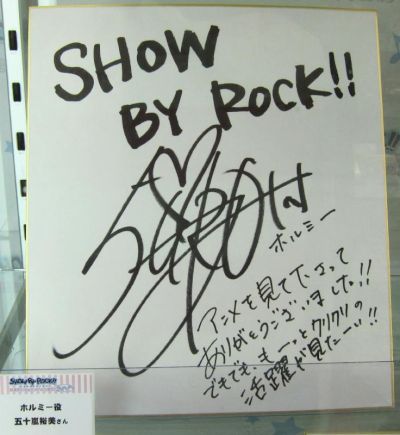 SHOW
BY ROCK!!
ホルミー
アニメを見て下さって
ありがとうございました!!
でもでも、もーっとクリクリの
活躍が見たーい!!
SHOW BY ROCK!!
ホルミー役
五十嵐裕美さん